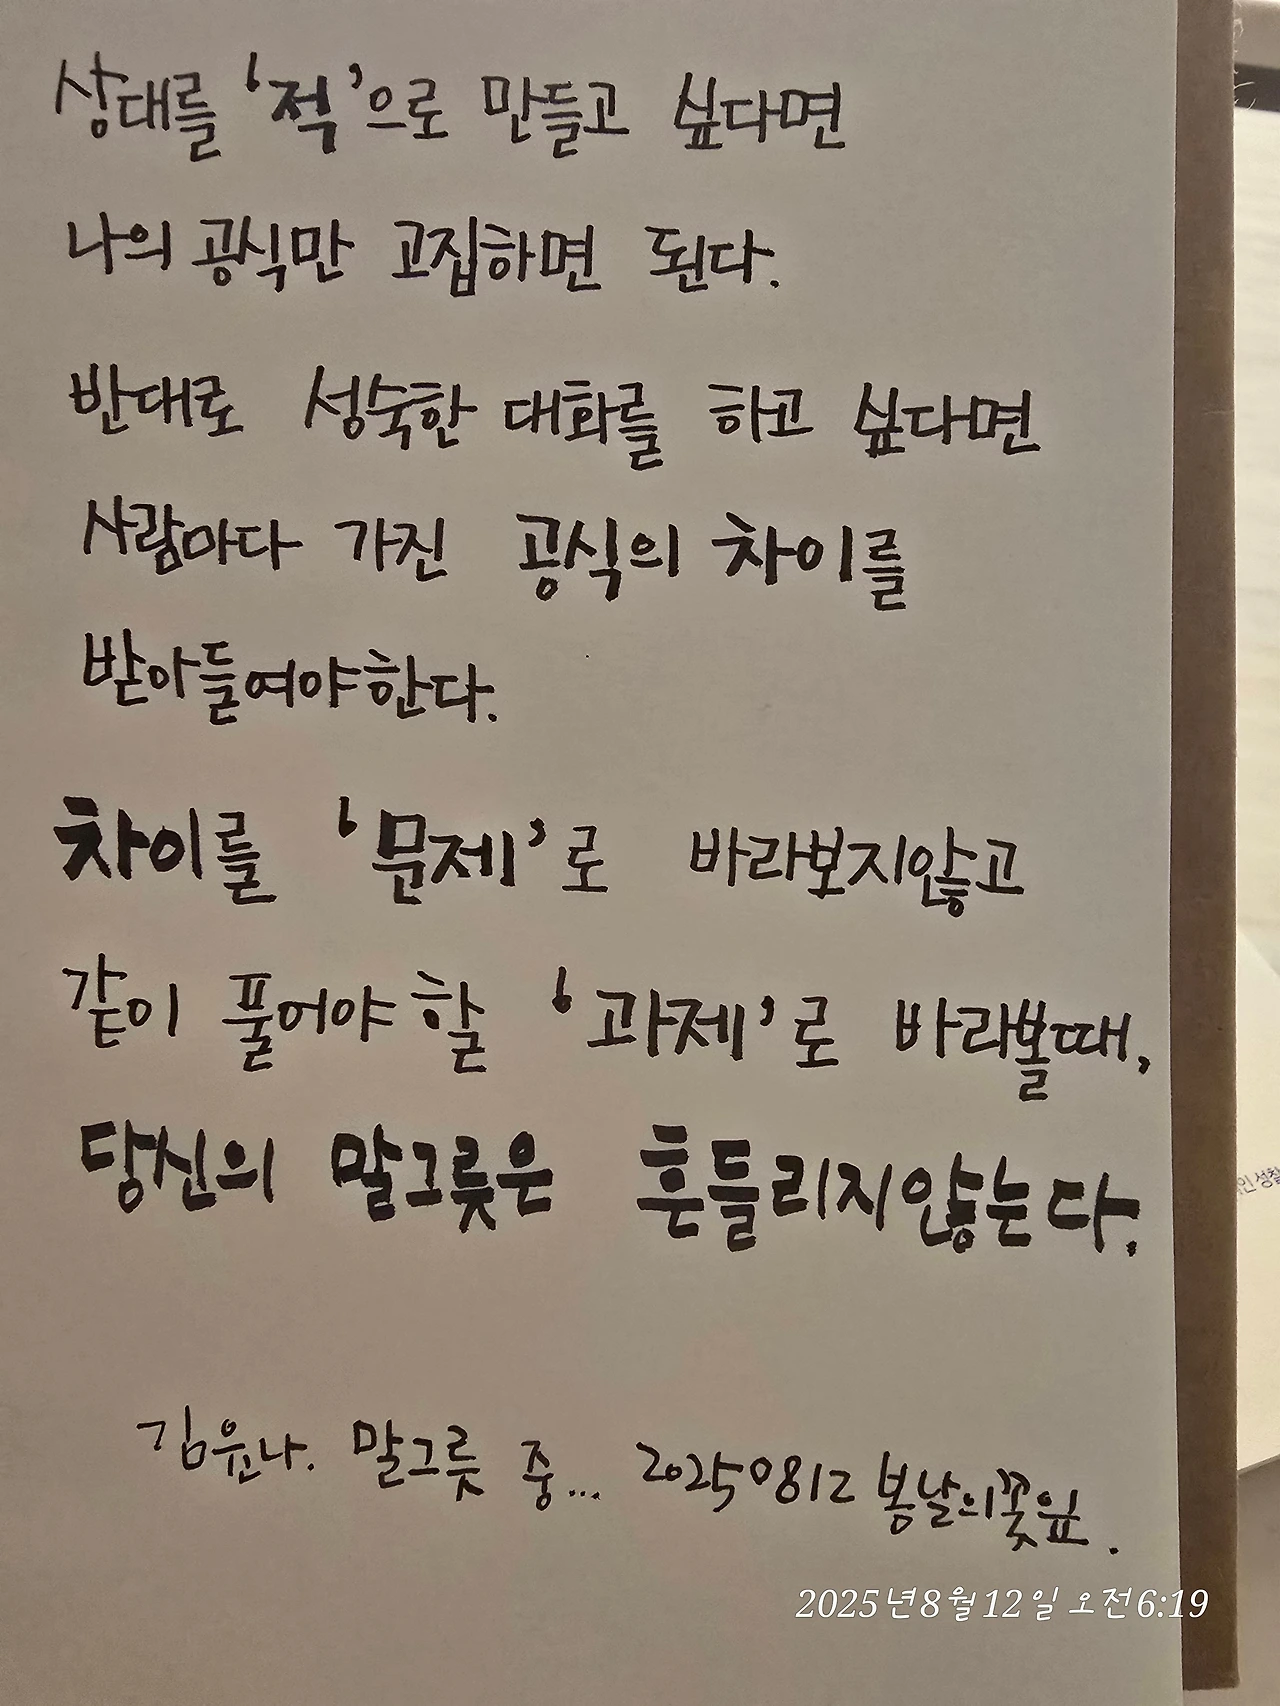 상대를 '적'으로 만들고 싶다면
나의 공식만 고집하면 된다.
반대로 성숙한 대화를 하고 싶다면
사람마다 가진 공식의 차이를
받아들여야한다.
차이를 '문제'로 바라보지않고
같이 풀어야 할 '과제'로 바라볼때,
당신의 말그릇은 흔들리지않는다.
김윤나. 말그릇 중... 20250812 봄날의꽃잎.
2025년 8월 12일 오전 6:19
성찰